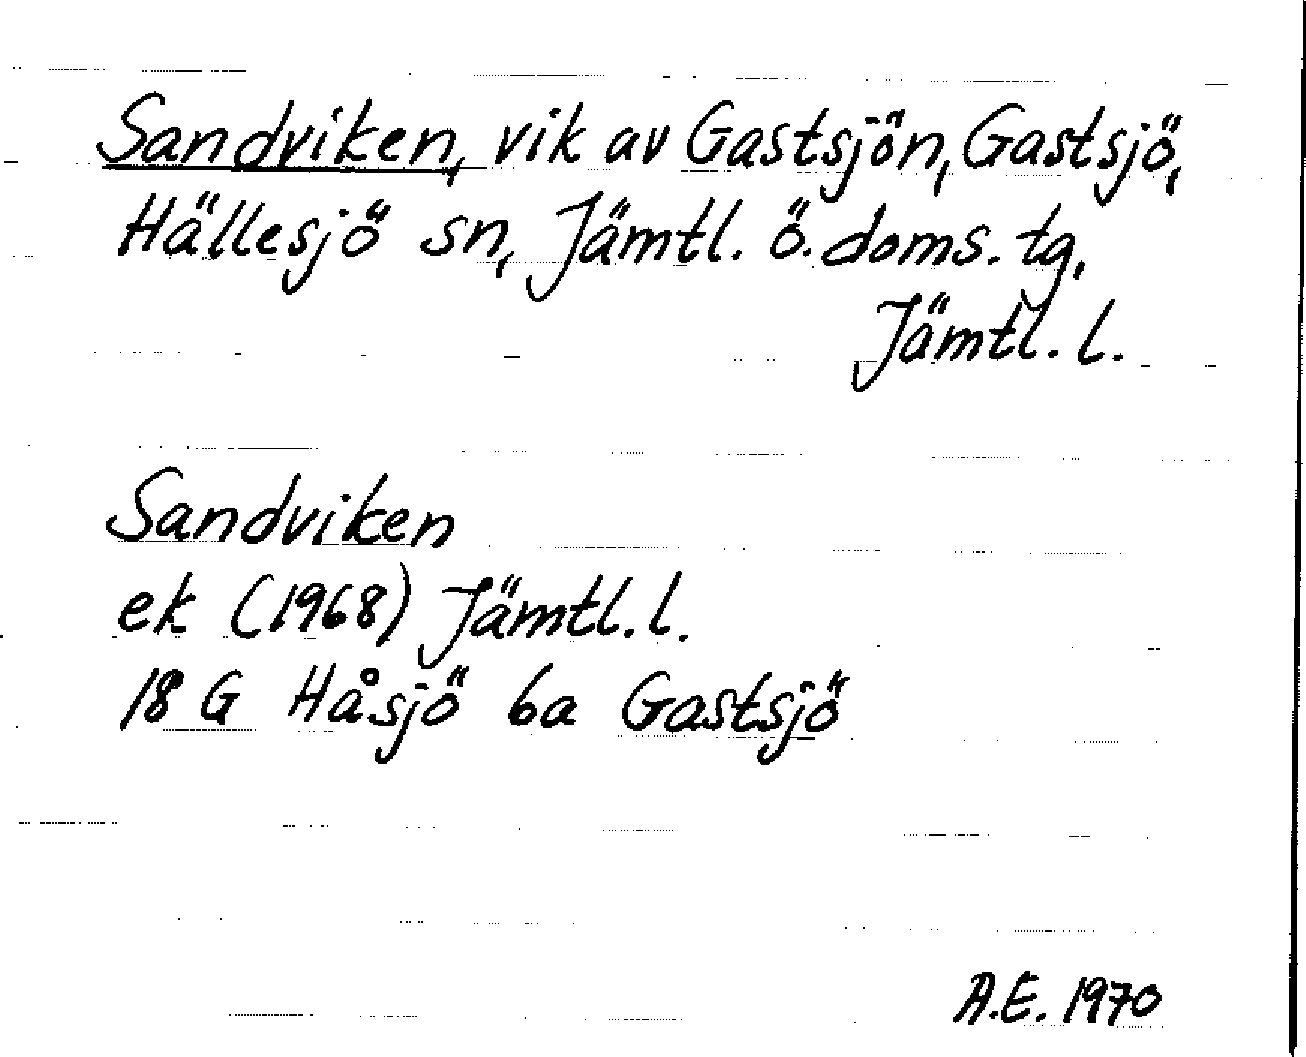 Sandviken, vik av Gastsjön, Gastsjö,
Hällesjö sn, Jämtl. ö. doms. tg,
Jämtl. l.
Sandviken
ek (1968) Jämtl. l.
18 G Håsjö 6a Gastsjö
A.E. 1970